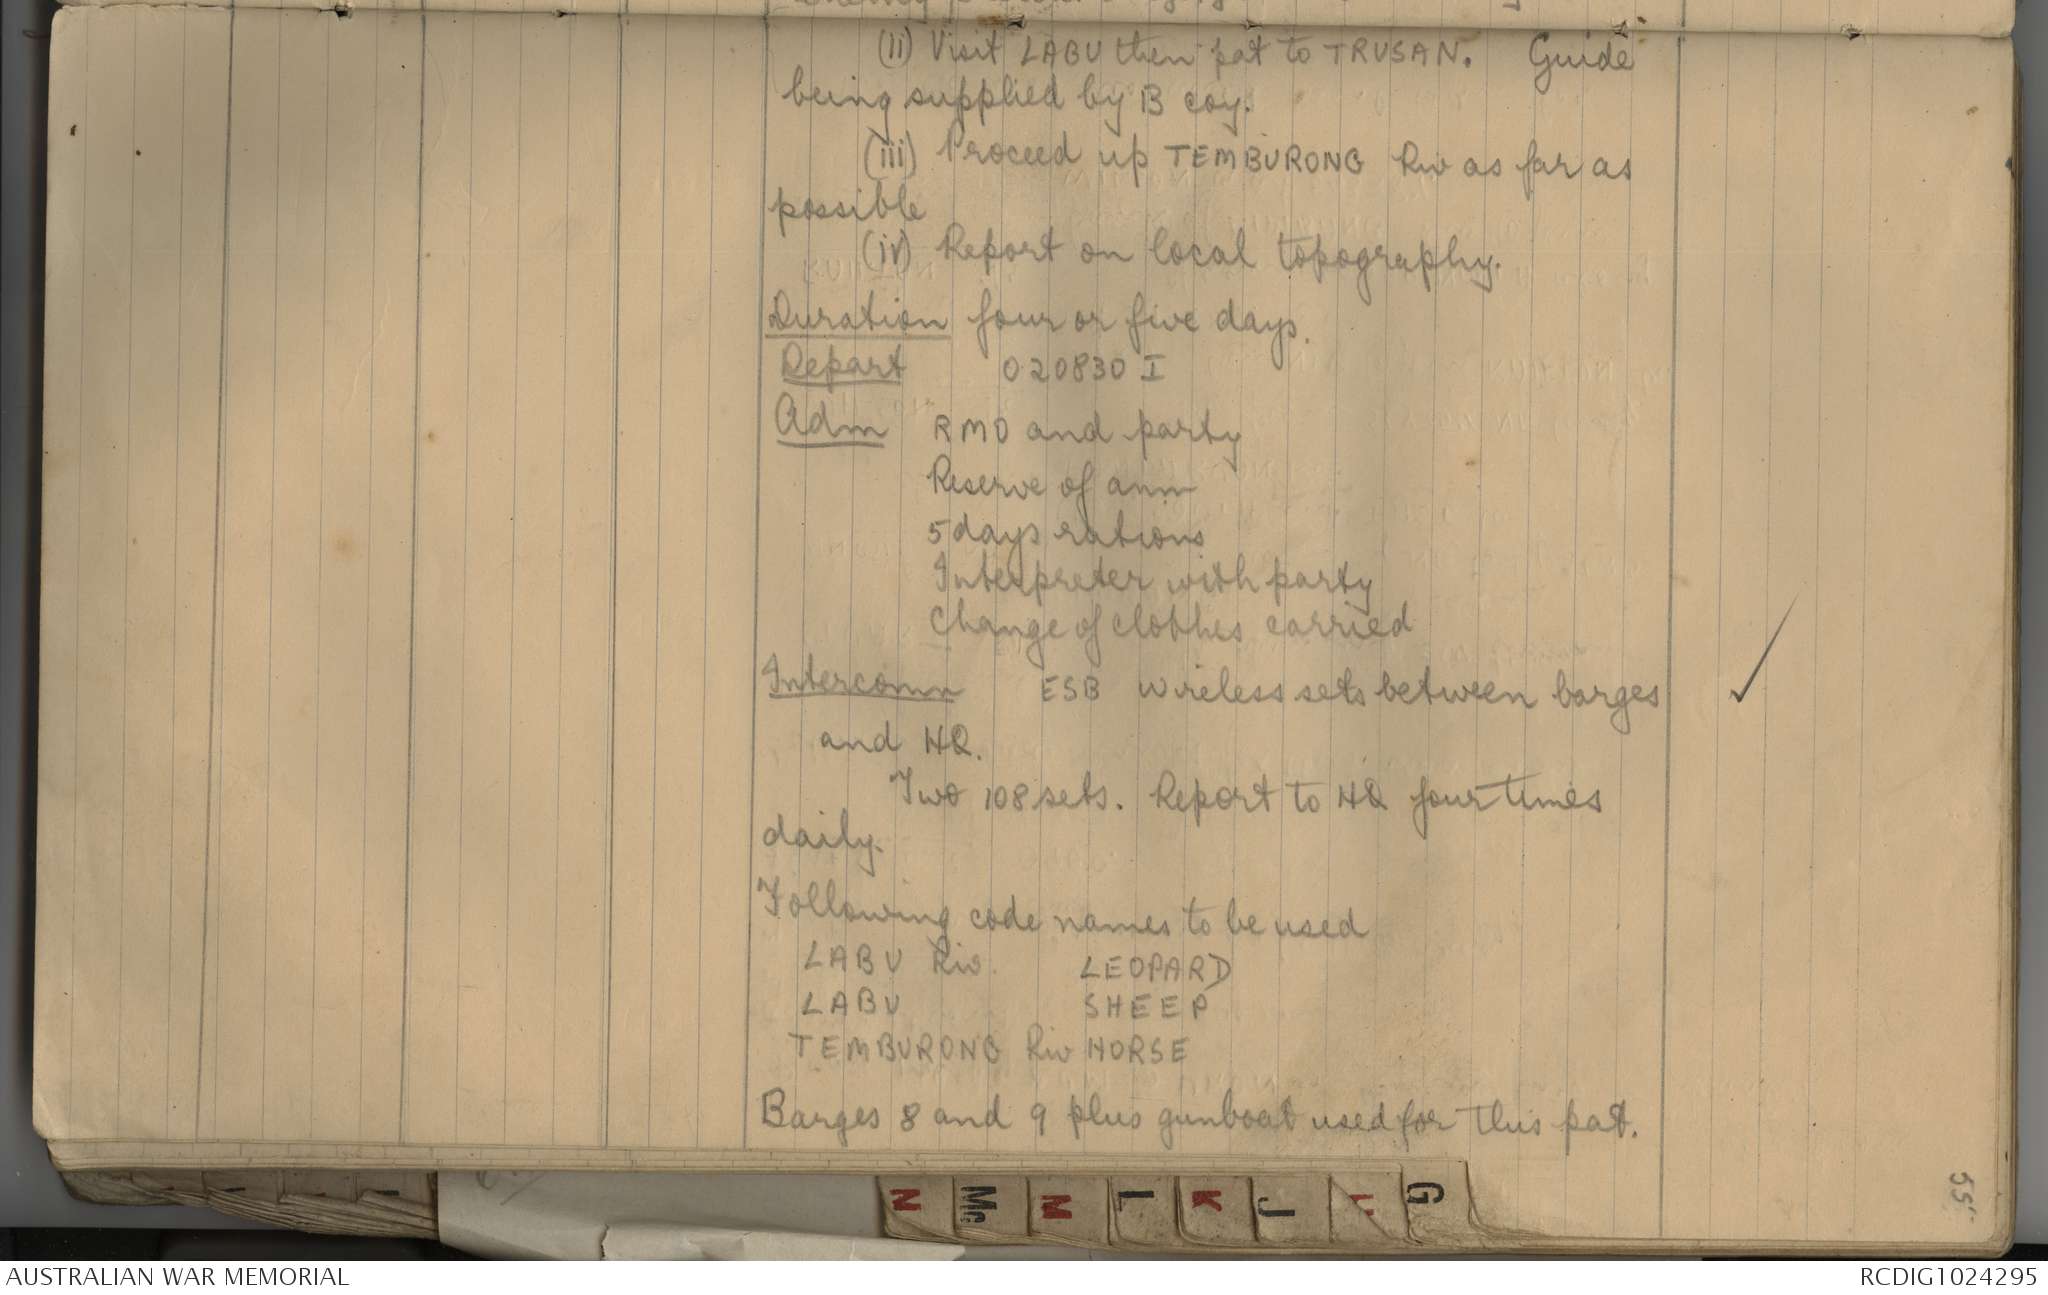 (ii) Visit LABU then pat to TRUSAN. Guide
being supplied by B coy.
(iii) Proceed up TEMBURONG Riv as far as
possible
(iv) Report on local topography.
Duration four or five days.
Depart 020830 I
Adm RMO and party
Reserve of amm
5 days rations
Interpreter with party
Change of clothes carried
Intercomn ESB wireless sets between barges
and HQ.
Two 108 sets. Report to HQ four times
daily.
Following code names to be used
LABU Riv. LEOPARD
LABU SHEEP
TEMBURONG Riv HORSE
Barges 8 and 9 plus gunboat used for this pat.
55
N Mc M L K J G
AUSTRALIAN WAR MEMORIAL
RCDIG1024295